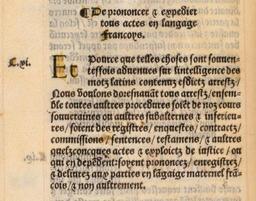 ¶De prononcer ⁊ expedier
tous actes en langage
Francoys.
C.xi.
Et Pource que telles choses sont souuen-
tesfois aduenues sur lintelligence des
motz latins contenuz esdictz arrestz/
Nous voulons doresnauāt tous arrestz/ ensem-
ble toutes aultres procedures soiēt de noz cours
souueraines ou aultres subalternes ⁊ inferieu-
res/soient des registres/ enquestes/ contractz/
commissions/sentences/ testamens/ ⁊ aultres
quelzconcques actes ⁊ exploictz de iustice/ ou
qui en depēdent:soyent prononcez/ enregistrez/
⁊ deliurez aux parties en lāgaige maternel frā-
cois/ ⁊ non aultrement.